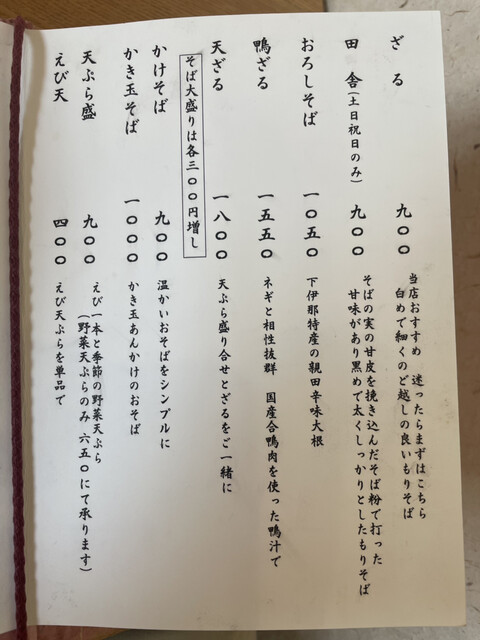 ざる 九〇〇 当店おすすめ 迷ったらまずはこちら
白めで細くのど越しの良いもりそば
田舎(土日祝日のみ) 九〇〇 そばの実の甘皮を挽き込んだそば粉で打った
甘味があり黒めで太くしっかりとしたもりそば
おろしそば 一〇五〇 下伊那特産の親田辛味大根
鴨ざる 一五五〇 ネギと相性抜群 国産合鴨肉を使った鴨汁で
天ざる 一八〇〇 天ぷら盛り合せとざるをご一緒に
そば大盛りは各三〇〇円増し
かけそば 九〇〇 温かいおそばをシンプルに
かき玉そば 一〇〇〇 かき玉あんかけのおそば
天ぷら盛 九〇〇 えび一本と季節の野菜天ぷら
(野菜天ぷらのみ 六五〇にて承ります)
えび天 四〇〇 えび天ぷらを単品で